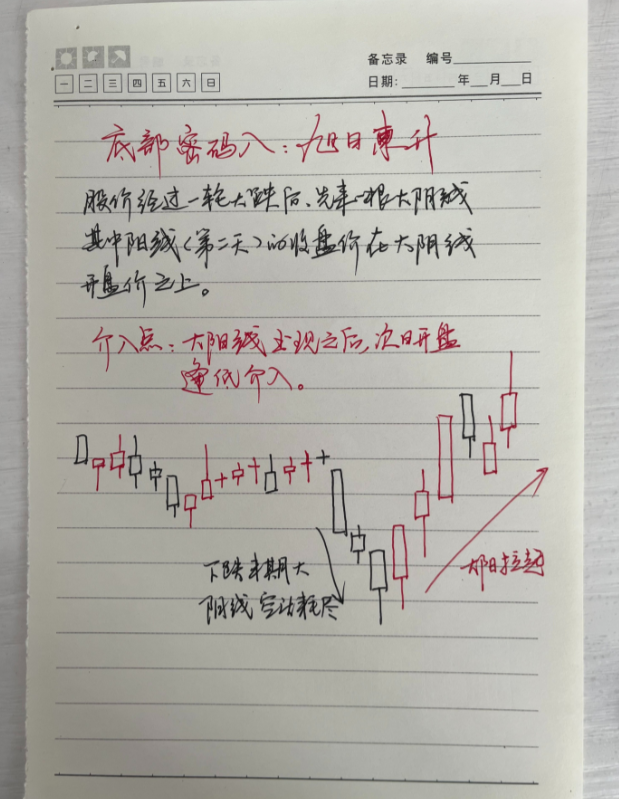 备忘录 编号
一 二 三 四 五 六 日
日期: 年 月 日
底部密码八:旭日東升
股价经过一轮大跌后、先来一根大阴线
其中阳线(第二天)的收盘价在大阴线
开盘价之上。
介入点:大阳线出现之后,次日开盘
逢低介入。
下跌末期大
阴线 空方耗尽
大阳拉起